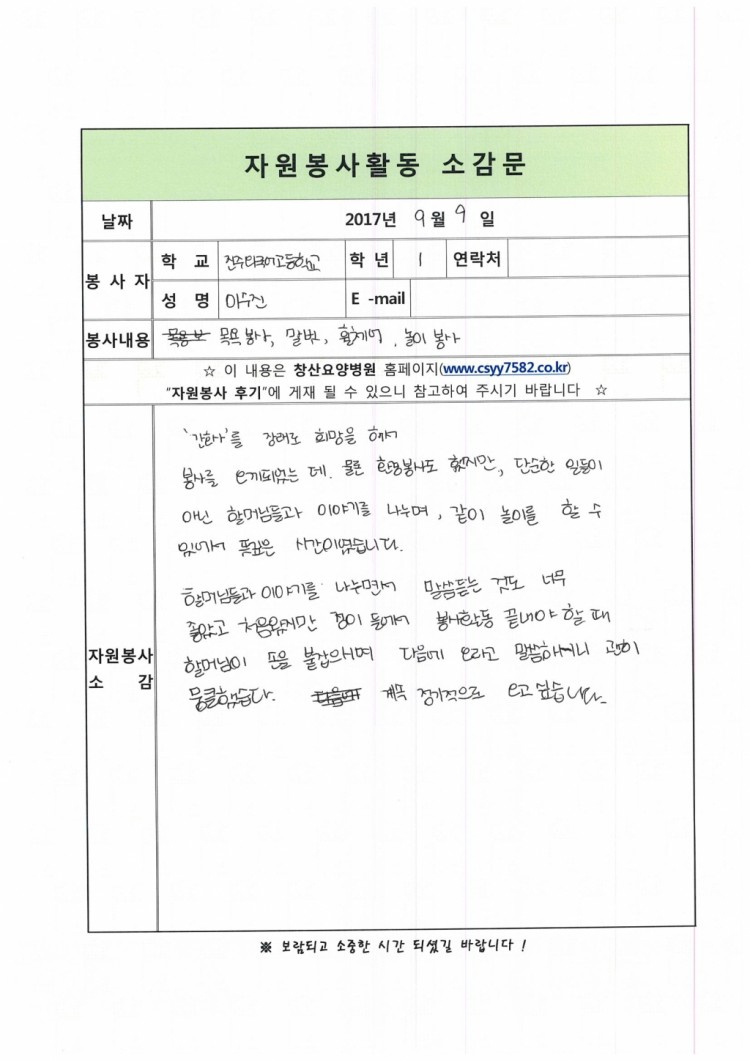 자원봉사활동 소감문
날짜 2017년 9월 9일
봉사자 학교 학년 1 연락처
성명 이수진 E-mail
봉사내용 목욕봉사, 말벗, 휠체어, 놀이봉사
☆ 이 내용은 창산요양병원 홈페이지(www.csyy7582.co.kr)
"자원봉사 후기"에 게재 될 수 있으니 참고하여 주시기 바랍니다 ☆
'간호사'를 장래로 희망을 해서
봉사를 오게되었는 데. 물론 환경봉사도 했지만, 단순한 일들이
아닌 할머님들과 이야기를 나누며, 같이 놀이를 할 수
있어서 뜻깊은 시간이였습니다.
할머님들과 이야기를 나누면서 말씀듣는 것도 너무
좋았고 처음왔지만 정이 들어서 봉사활동 끝내야 할 때
할머님이 손을 붙잡으시며 다음에 오라고 말씀하시니 괜히
뭉클했습니다. 계속 정기적으로 오고 싶습니다.
자원봉사
소 감
※ 보람되고 소중한 시간 되셨길 바랍니다 !